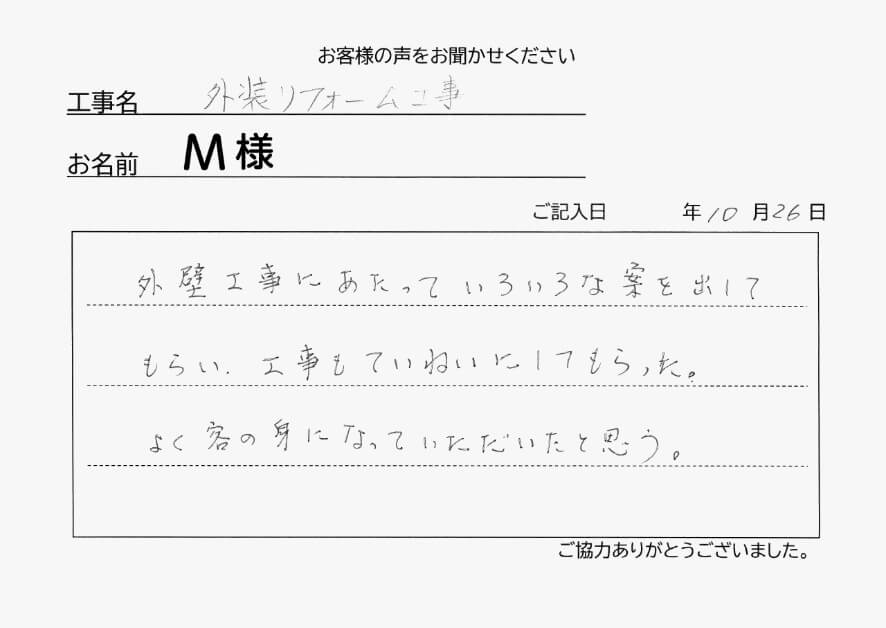 お客様の声をお聞かせください
工事名 外装リフォーム工事
お名前 M様
ご記入日 年10月26日
外壁工事にあたっていろいろな案を出して
もらい、工事もていねいにしてもらった。
よく客の身になっていただいたと思う。
ご協力ありがとうございました。